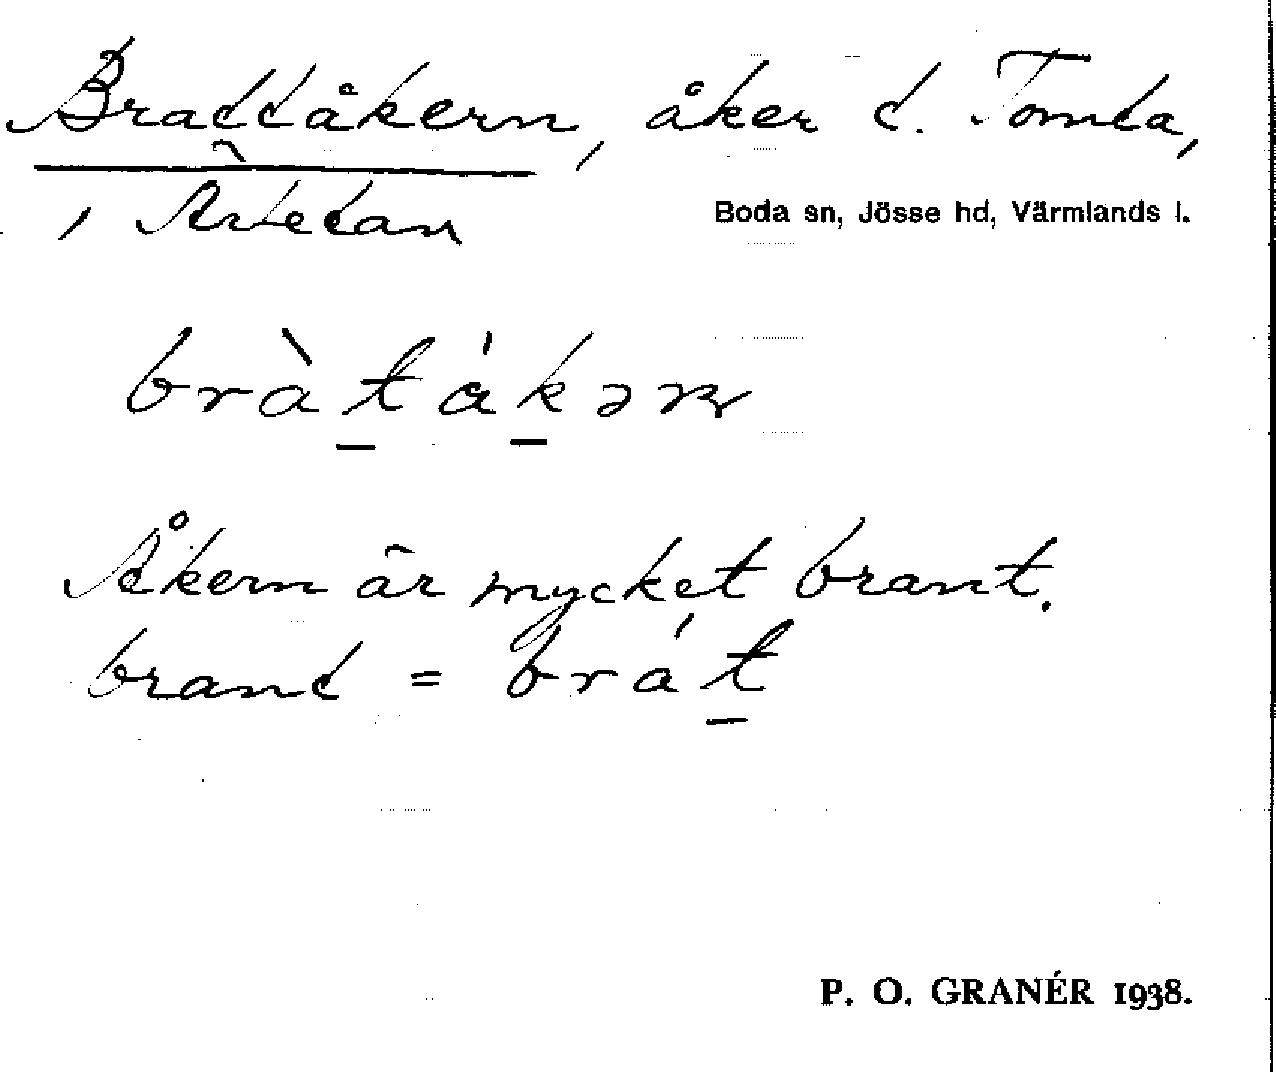 Brattåkern, åker t. Tomta,
Boda sn, Jösse hd, Värmlands l.
bràtåkəɳ
Åkern är mycket brant.
brant = brát
P. O. GRANÉR 1938.